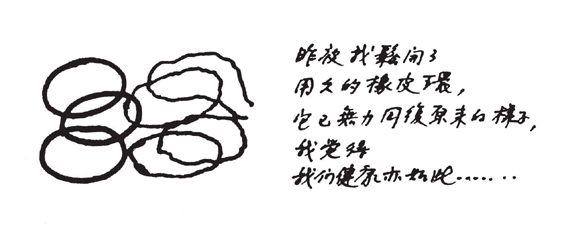 昨夜我鬆開了
用久的橡皮環，
它已無力回復原來的樣子，
我覺得
我们健康亦如此……..